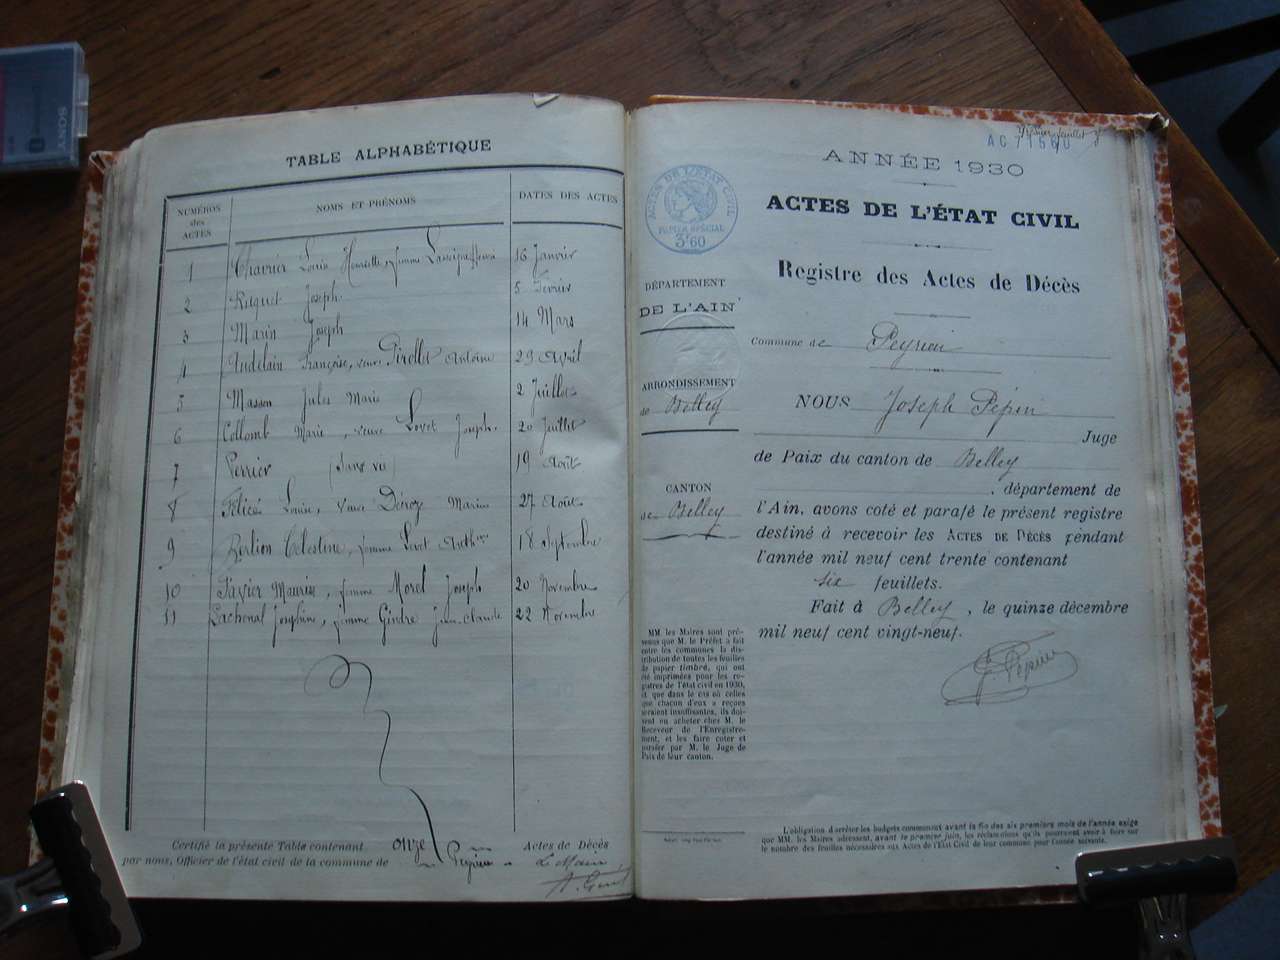 SONY
TABLE ALPHABÉTIQUE
NUMÉROS des ACTES
NOMS ET PRÉNOMS
DATES DES ACTES
1 Louise Henriette, femme 16 Janvier
2 Joseph 5 Février
3 Marin Joseph 14 Mars
4 Audelain Françoise, veuve Pirollet Antoine 29 Avril
5 Masson Jules Marie 2 Juillet
6 Collomb Marie, veuve Lovet Joseph. 20 Juillet
7 Perrier (sans vie) 19 Août
8 Félices Louise, veuve Déroze Marius 27 Août
9 Berlion Célestine, femme Lovet 18 Septembre
10 Favier Maurise, femme Morel Joseph 20 Novembre
11 Lachenal Joséphine, femme Gindre Jean Claude 22 Novembre
Certifié la présente Table contenant onze Actes de Décès
par nous, Officier de l'état civil de la commune de Peyrieu
Le Maire
AC 71560
ANNÉE 1930
ACTES DE L'ÉTAT CIVIL
PAPIER SPÉCIAL
3f60
ACTES DE L'ÉTAT CIVIL
Registre des Actes de Décès
DÉPARTEMENT
DE L'AIN
Commune de Peyrieu
ARRONDISSEMENT
de Belley
NOUS Joseph Pépin
Juge
de Paix du canton de Belley
CANTON
de Belley
, département de
l'Ain, avons coté et parafé le présent registre
destiné à recevoir les ACTES DE DÉCÈS pendant
l'année mil neuf cent trente contenant
six feuillets.
Fait à Belley, le quinze décembre
mil neuf cent vingt-neuf.
J. Pépin
MM. les Maires sont pré-
venus que M. le Préfet a fait
entre les communes la dis-
tribution de toutes les feuilles
de papier timbré, qui ont
été imprimées pour les re-
gistres de l'état civil en 1930,
et que dans le cas où celles
que chacun d'eux a reçues
seraient insuffisantes, ils doi-
vent en acheter chez M. le
Receveur de l'Enregistre-
ment, et les faire coter et
parafer par M. le Juge de
Paix de leur canton.
L'obligation d'arrêter les budgets communaux avant la fin des six premiers mois de l'année exige
que MM. les Maires adressent, avant le premier juin, les réclamations qu'ils pourraient avoir à faire sur
le nombre des feuilles nécessaires aux Actes de l'État Civil de leur commune pour l'année suivante.